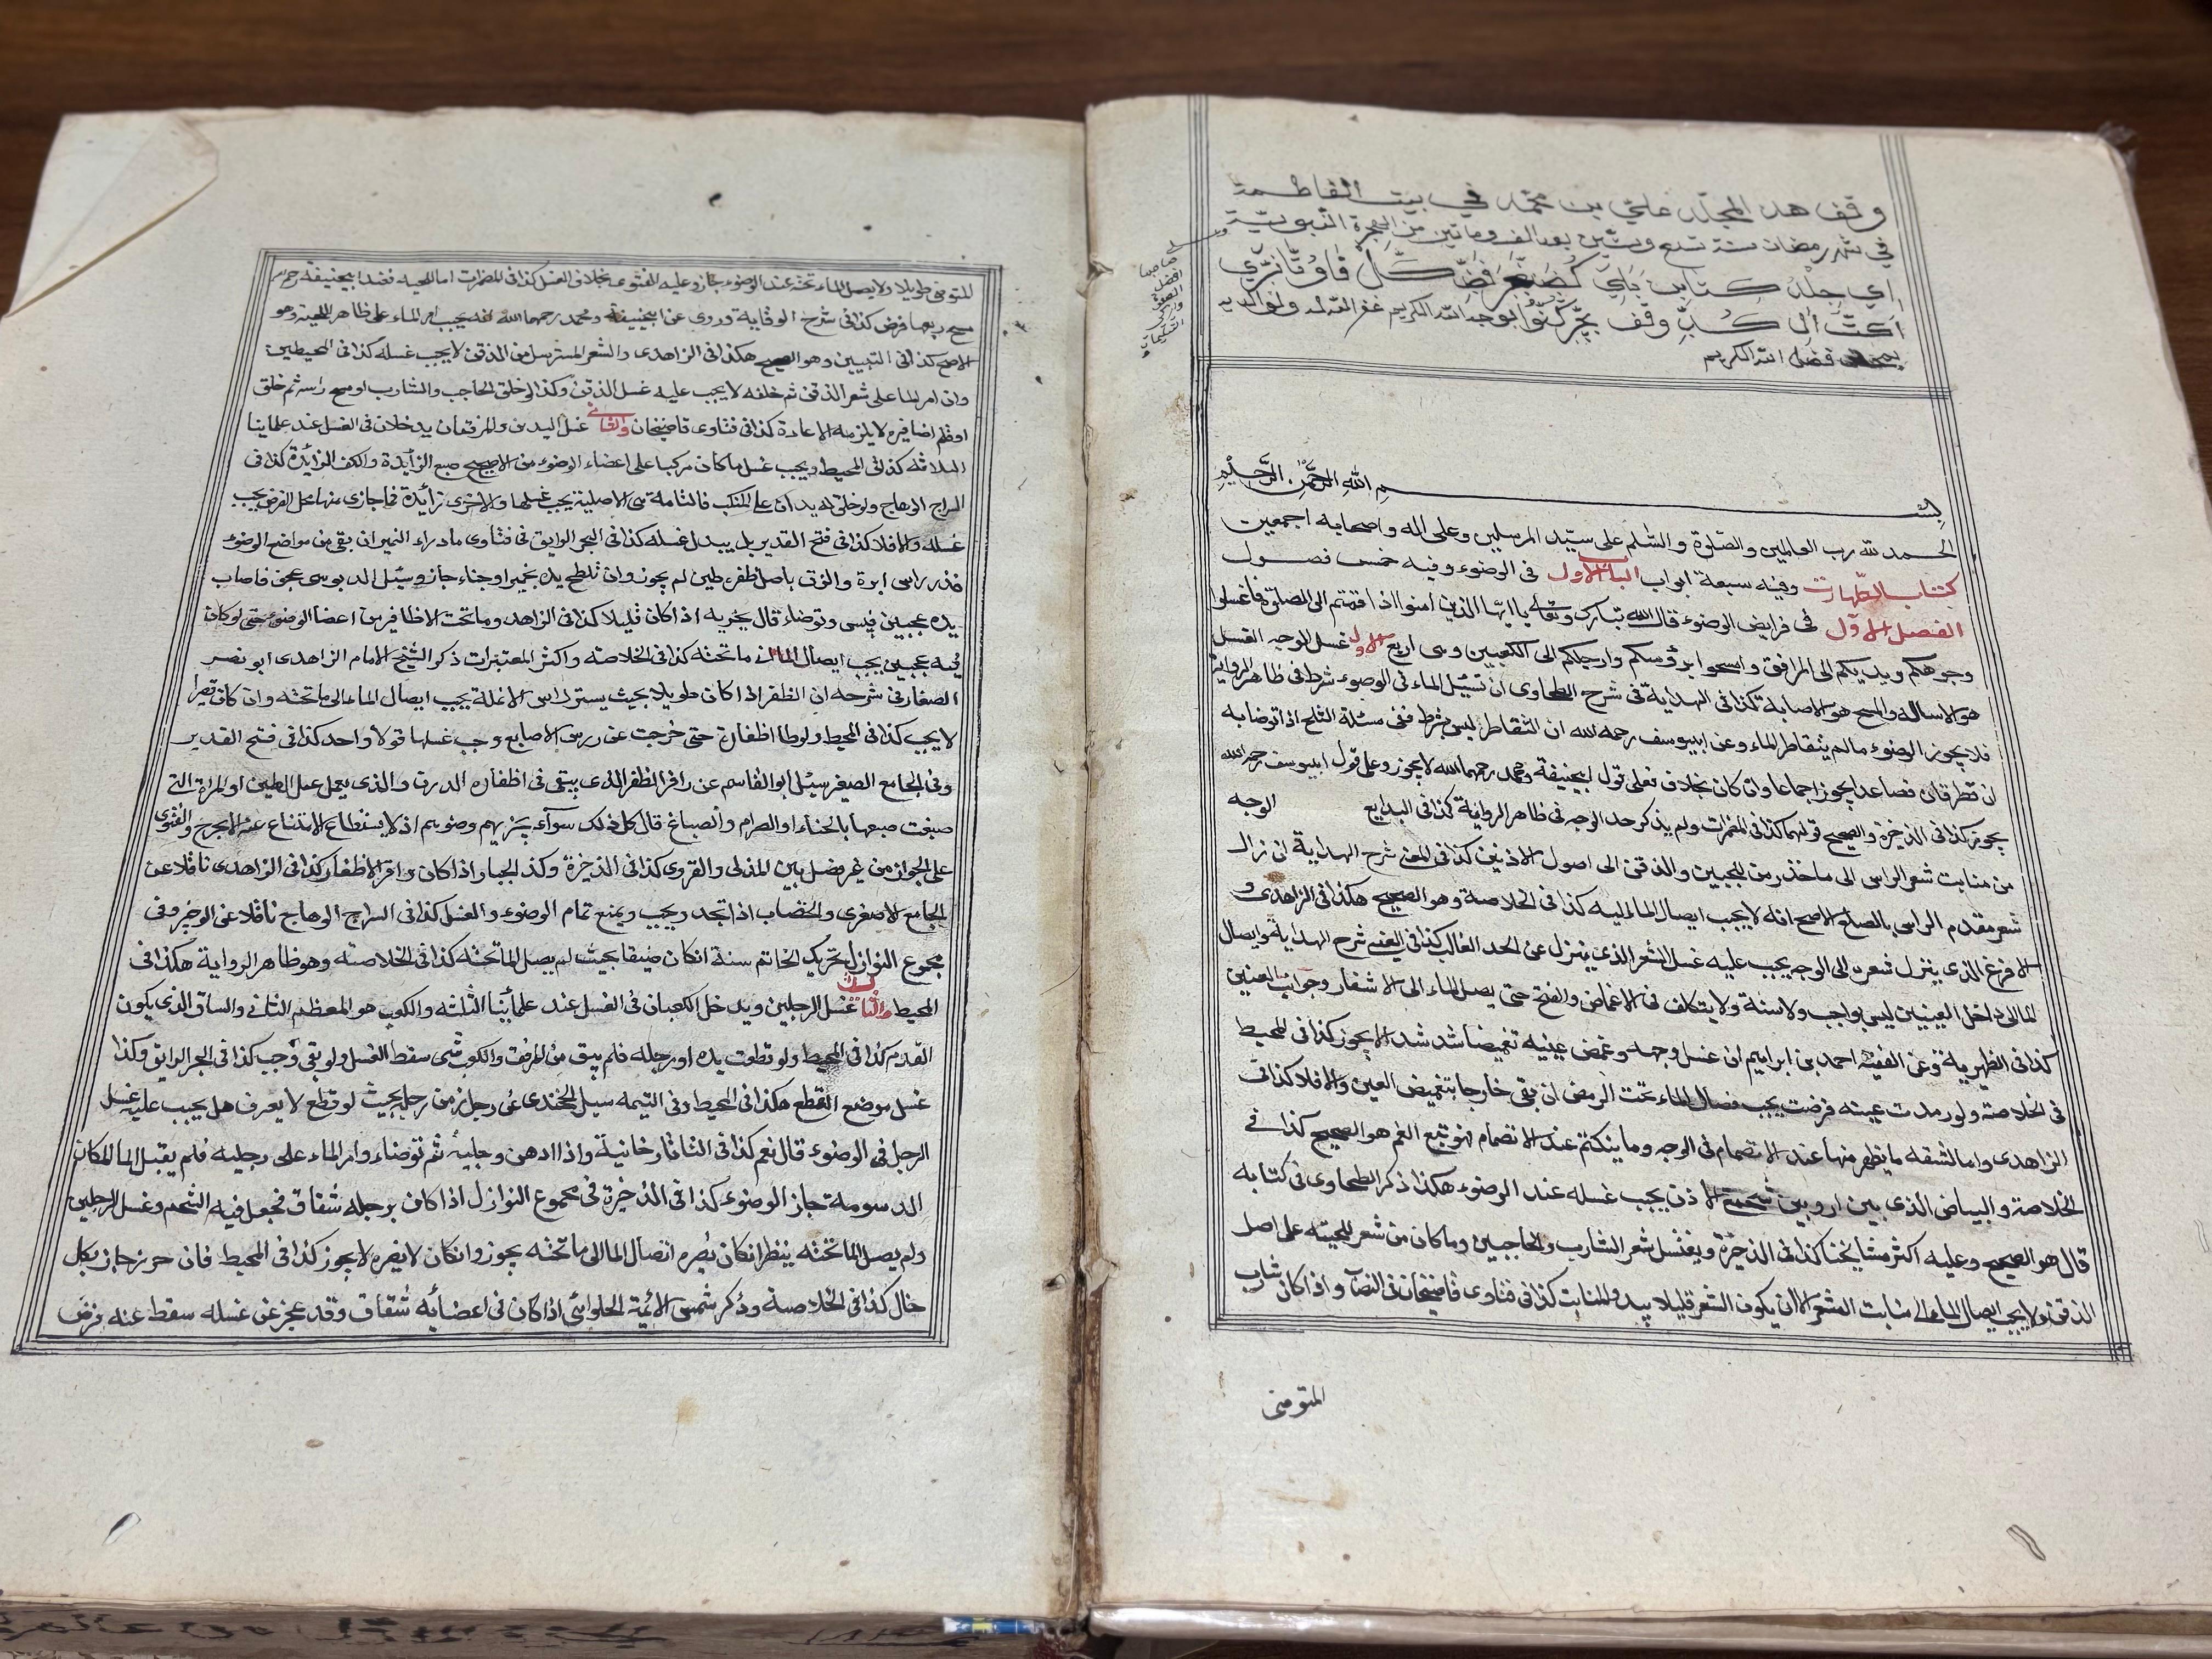 وقف هذ المجلد علي بن محمد في بيت الفاطمة
في شهر رمضان سنة تسع وستين بعد الف وماتين من الهجرة النبوية
على صاحبها افضل الصلوة وازكى التسليمات
اي جلد كتاب
وقف بوجه الله الكريم غفر الله له ولوالديه
فضل الله الكريم
بسم الله الرحمن الرحيم
الحمد لله رب العالمين والصلوة والسلم على سيد المرسلين وعلى اله واصحابه اجمعين
كتاب الطهارت وفيه سبعة ابواب الباب الاول فى الوضوء وفيه خمس فصول
الفصل الاول فى فرايض الوضوء قال الله تبارك وتعالى يا ايها الذين امنوا اذا قمتم الى الصلوة فاغسلوا
وجوهكم ويديكم الى المرافق وامسحوا برؤسكم وارجلكم الى الكعبين وهى اربع الاول غسل الوجه الغسل
هو الاسالة والمسح هو الاصابة كذا فى الهداية فى شرح الطحاوى ان تسييل الماء فى الوضوء شرط فى ظاهر الرواية
فلا يجوز الوضوء مالم يتقاطر الماء وعن ابيوسف رحمه الله ان التقاطر ليس بشرط ففى مسئلة الثلج اذا توضا به
ان قطر قطرتان فصاعدا يجوز اجماعا وان كان بخلاف فعلى قول ابيحنيفة ومحمد رحمهما الله لا يجوز وعلى قول ابيوسف رحمه الله
يجوز كذا فى الذخيرة والصحيح قولهما كذا فى المضمرات ولم يذكر حد الوجه فى ظاهر الرواية كذا فى البدايع الوجه
من منابت شعر الراس الى ماخذر من اللحيين والذقن الى اصول الاذنين كذا فى المعنى شرح الهداية ان زال
شعر مقدم الراس بالصلع الاصح انه لا يجب ايصال الما اليه كذا فى الخلاصة وهو الصحيح هكذا فى الزاهدى و
الاقرع الذى ينزل شعره الى الوجه يجب عليه غسل الشعر الذى ينزل عن الحد الغالب كذا فى العينى شرح الهداية وايصال
الما الى داخل العينين ليس بواجب ولا سنة ولا يتكلف فى الاغماض والفتح حتى يصل الماء الى الاشفار وجوانب العينين
كذا فى الظهيرية وعن الفقيه احمد بن ابراهيم ان غسل وجهه وغمض عينيه تغميضا شديدا لا يجوز كذا فى المحيط
فى الخلاصة ولو رمدت عينه فرمصت يجب ايصال الماء تحت الرمص ان بقى خارجا بتغميض العين والا فلا كذا فى
الزاهدى واما الشفة ما يظهر منها عند الانضمام فى الوجه وما ينكتم عند الانضمام فهو تبع الفم هو الصحيح كذا فى
الخلاصة والبياض الذى بين وبين شحمة الاذن يجب غسله عند الوضوء هكذا ذكر الطحاوى فى كتابه
قال هو الصحيح وعليه اكثر مشايخنا كذا فى الذخيرة ويغسل شعر الشارب والحاجبين وما كان من شعر اللحيته على اصل
الذقن ولا يجب ايصال الما الى منابت الشعر الا ان يكون الشعر قليلا يبدو المنابت كذا فى فتاوى قاضيخان فى النصاب واذا كان شارب
المتوضى
للتوضى طويلا ولا يصل الماء تحته عند الوضوء جاز وعليه الفتوى بخلاف الغسل كذا فى المضمرات اما اللحيه فعند ابيحنيفة رحمه الله
مسح ربعها فرض كذا فى شرح الوقاية وروى عن ابيحنيفة ومحمد رحمهما الله انه يجب امر الماء على ظاهر اللحية وهو
الاصح كذا فى التبيين وهو الصحيح هكذا فى الزاهدى والشعر المسترسل من الذقن لا يجب غسله كذا فى المحيطين
وان امر الما على شعر الذقن ثم حلقه لا يجب عليه غسل الذقن وكذا لو حلق الحاجب والشارب او مسح راسه ثم حلق
او قلم اضافيره لا يلزمه الاعادة كذا فى فتاوى قاضيخان والثانى غسل اليدين والمرفقان يدخلان فى الغسل عند علماينا
الثلاثه كذا فى المحيط ويجب غسل ما كان مركبا على اعضاء الوضوء من الاصبع الزايدة والكف الزائدة كذا فى
السراج الوهاج ولو خلق له يدان على المنكب فالتامة هى الاصلية يجب غسلها والاخرى زائدة فما حاذى منها محل الفرض يجب
غسله والا فلا كذا فى فتح القدير بل يندب غسله كذا فى البحر الرايق فى فتاوى ماوراء النهر ان بقى من مواضع الوضوء
قدر راس ابرة والزق باصل ظفره طين لم يجوز وان تلطخ يده بخمير او حناء جاز وسئل الدبوسى عمن عجن فاصاب
يده عجين فيبس وتوضاء قال يجزيه اذا كان قليلا كذا فى الزاهد وما تحت الاظافير من اعضا الوضوء حتى لو كان
فيه عجين يجب ايصال الما الى ما تحته كذا فى الخلاصه واكثر المعتبرات ذكر الشيخ الامام الزاهدى ابو نصر
الصفار فى شرحه ان الظفر اذا كان طويلا بحيث يستر راس الانملة يجب ايصال الماء الى ما تحته وان كان قصيرا
لا يجب كذا فى المحيط ولو طال اظفاره حتى خرجت عن روس الاصابع وجب غسلها قولا واحدا كذا فى فتح القدير
وفى الجامع الصغير سئل ابو القاسم عن وافر الظفر الذى يبقى فى اظفاره الدرن والذى يعمل عمل الطين او المراة التى
صبغت صبعها بالحناء او الصرام والصباغ قال كل ذلك سواء يجزيهم وضوئهم اذ لا يستطاع الامتناع عنه الا بحرج والفتوى
على الجواز من غير فصل بين المدنى والقروى كذا فى الذخيرة وكذ الخباز اذا كان وافر الاظفار كذا فى الزاهدى ناقلا عن
الجامع الاصغرى والخضاب اذا تجسد ويبس يمنع تمام الوضوء والغسل كذا فى السراج الوهاج ناقلا عن الوجيز وفى
مجموع النوازل تحريك الخاتم سنة انكان ضيقا بحيث لم يصل الما تحته كذا فى الخلاصته وهو ظاهر الرواية هكذا فى
المحيط والثالث غسل الرجلين ويدخل الكعبان فى الغسل عند علمائينا الثلثه والكعب هو العظم الناتى والساق الذى يكون
القدم كذا فى المحيط ولو قطعت يده او رجله فلم يبق من المرفق والكعب شى سقط الغسل ولو بقى وجب كذا فى البحر الرايق وكذا
غسل موضع القطع هكذا فى المحيط وفى اليتيمه سيل الخجندى عن رجل زمن رجله بحيث لو قطع لا يعرف هل يجب عليه غسل
الرجل فى الوضوء قال نعم كذا فى التاتارخانية واذا ادهن رجليه ثم توضاء وامر الماء على رجليه فلم يقبل الما لمكان
الدسومة جاز الوضوء كذا فى الذخيرة فى مجموع النوازل اذا كان برجله شقاق فجعل فيه الشحم وغسل الرجلين
ولم يصل الما تحته ينظر انكان يضره ايصال الما الى ما تحته يجوز وانكان لا يضره لا يجوز كذا فى المحيط فان خرز جاز بكل
حال كذا فى الخلاصة وذكر شمس الائمة الحلوائى اذا كان فى اعضائه شقاق وقد عجز عن غسله سقط عنه فرض